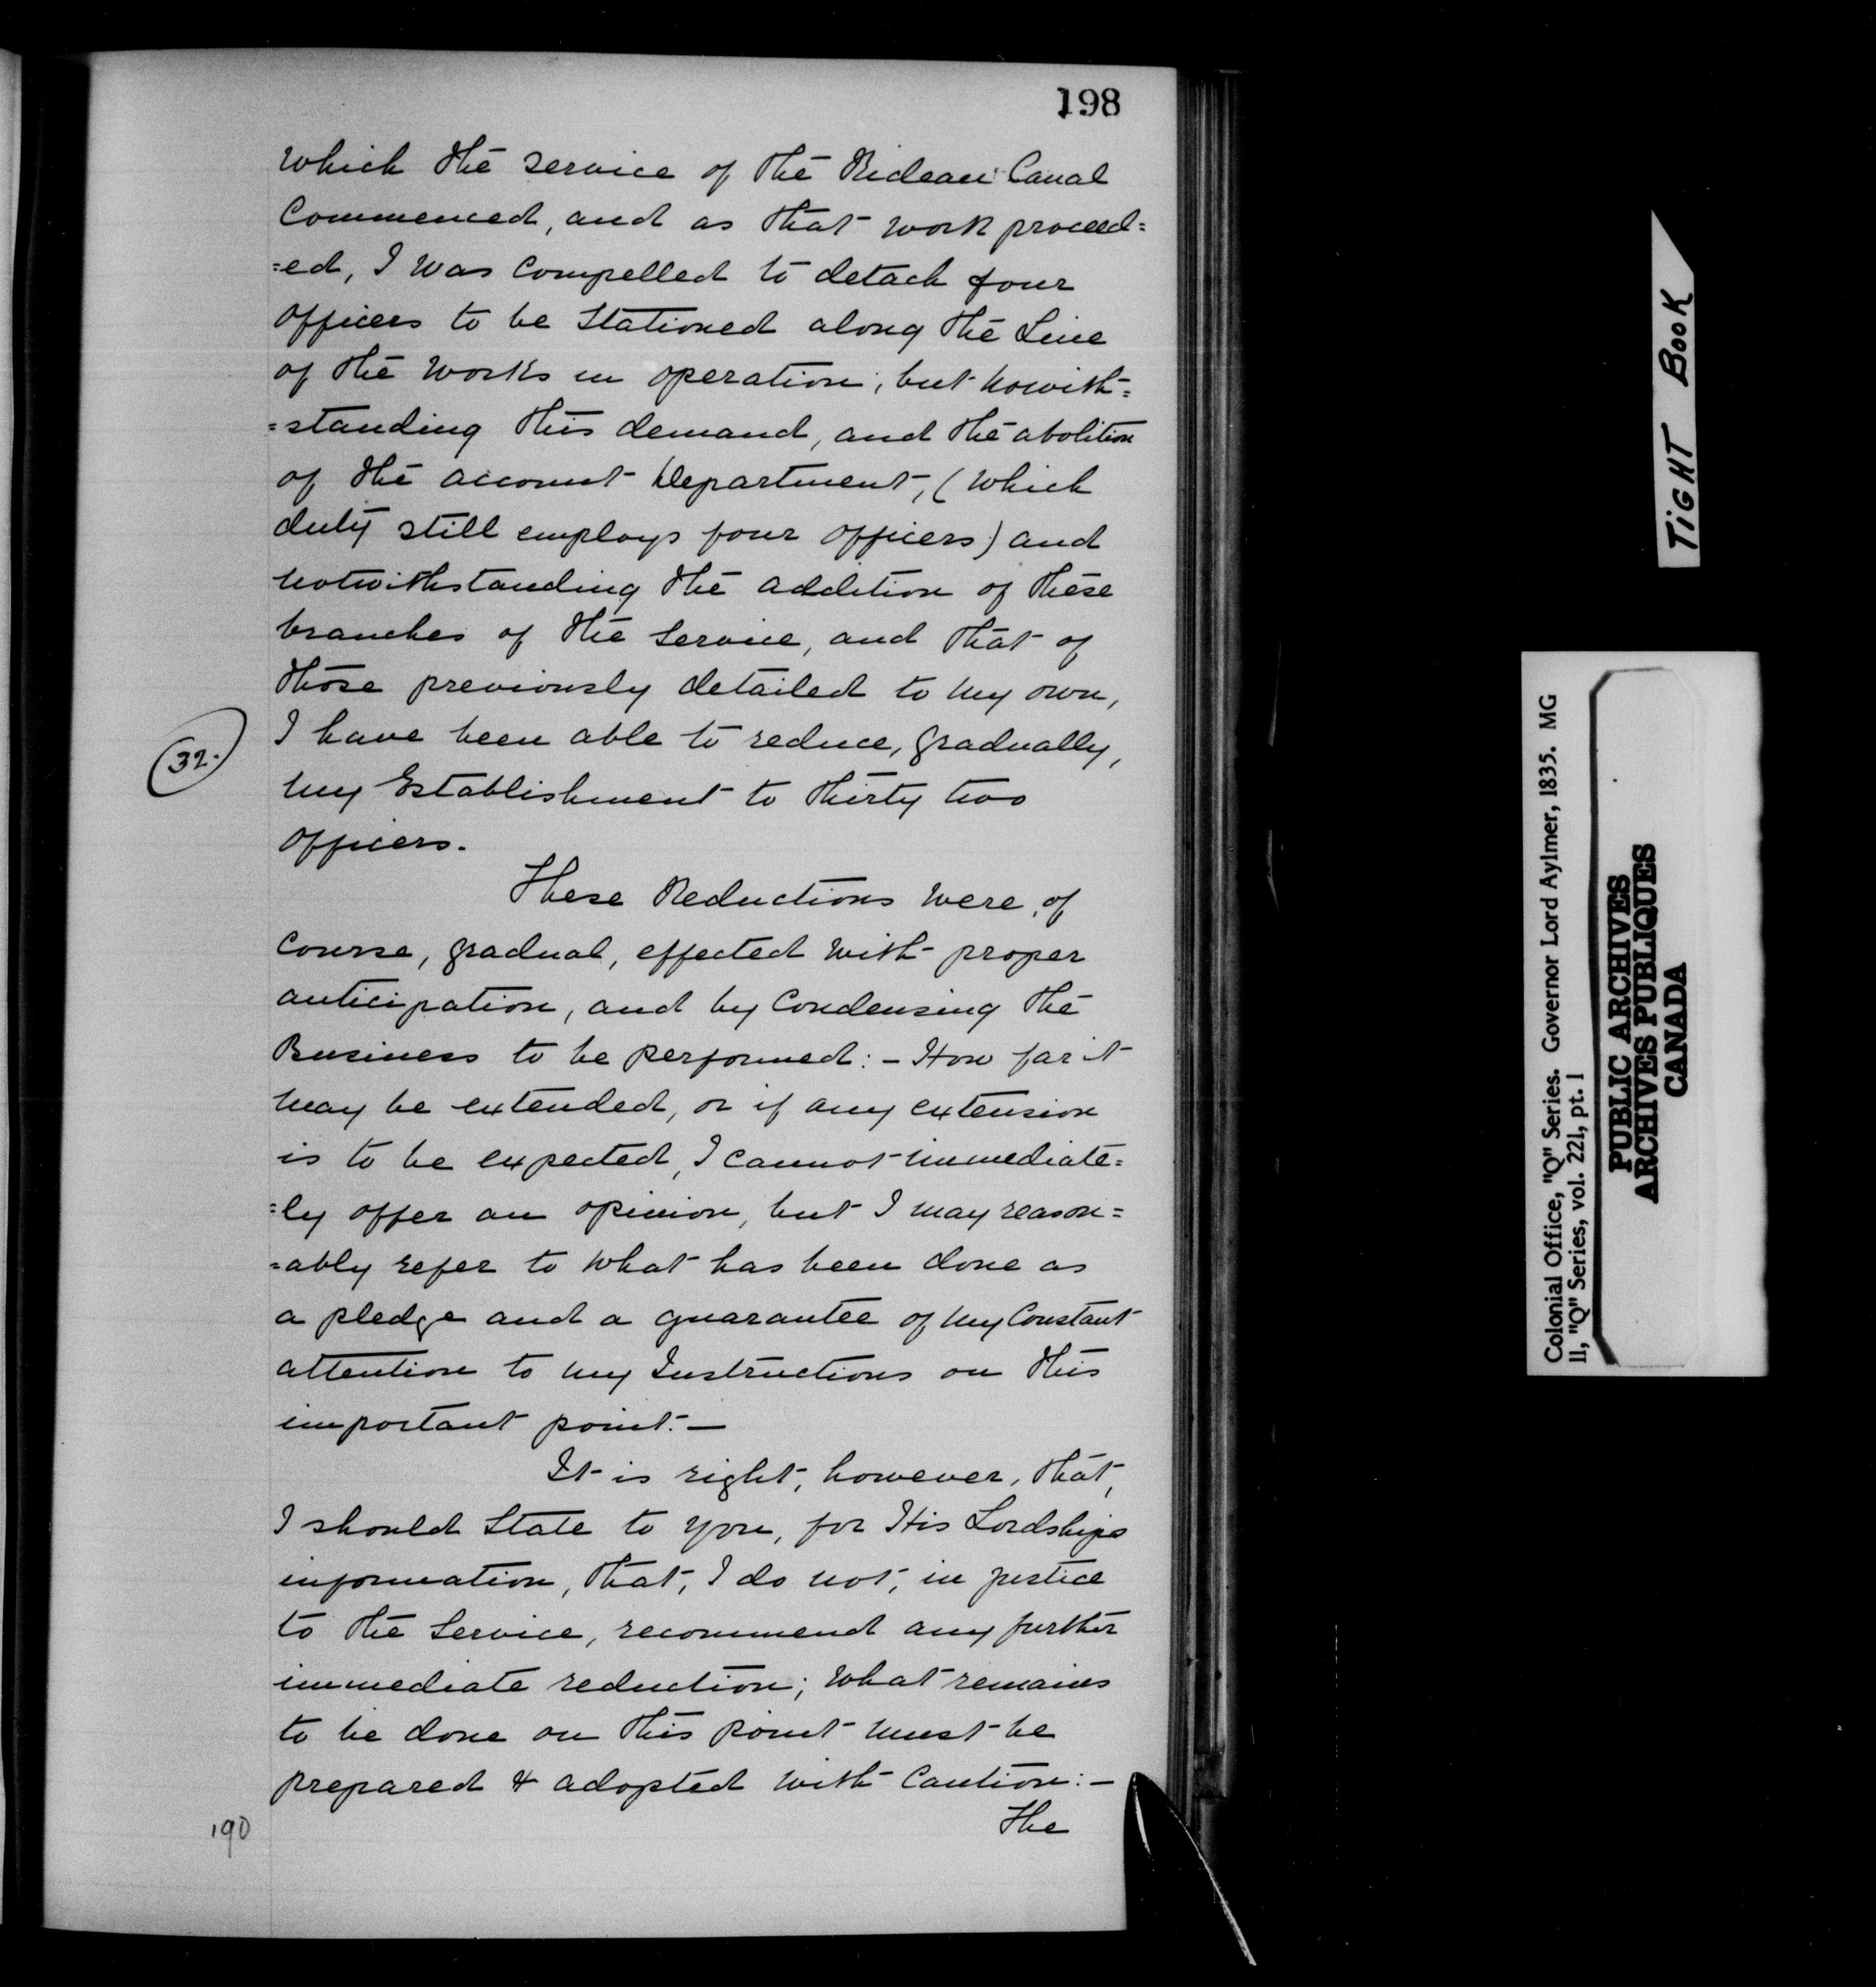 198
which the service of the Rideau Canal
Commenced, and as that work proceed=
=ed, I was compelled to detach four
officers to be Stationed along the Line
of the works in operation; but nowith=
=standing this demand, and the abolition
of the account Department, (which
duty still employs four officers) and
notwithstanding the addition of these
branches of the Service, and that of
those previously detailed to my own,
I have been able to reduce, gradually,
32.
my Establishment to Thirty two
officers.
These Reductions were, of
course, gradual, effected with proper
anticipation, and by Condensing the
Business to be performed: - How far it
may be extended, or if any extension
is to be expected, I cannot immediate=
=ly offer an opinion, but I may reason=
=ably refer to what has been done as
a pledge and a guarantee of my Constant
attention to my Instructions on this
important point. —
It is right, however, that,
I should State to you, for His Lordships
information, that, I do not, in justice
to the Service, recommend any further
immediate reduction; what remains
to be done on this point must be
prepared & adopted with Caution: —
The
190
TIGHT BOOK
Colonial Office, "Q" Series. Governor Lord Aylmer, 1835. MG
11, "Q" Series, vol. 221, pt. 1
PUBLIC ARCHIVES
ARCHIVES PUBLIQUES
CANADA